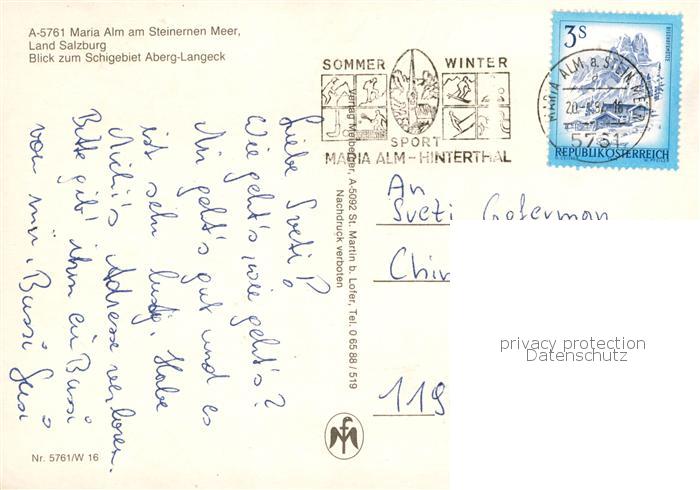 A-5761 Maria Alm am Steinernen Meer,
Land Salzburg
Blick zum Schigebiet Aberg-Langeck
SOMMER WINTER
SPORT
MARIA ALM-HINTERTHAL
MARIA ALM a. STEIN. MEER
5761
3S
REPUBLIK ÖSTERREICH
Liebe Sveti!
Wie geht's, wie geht's?
Mir geht's gut und es
ist sehr lustig. Habe
Michi's Adresse verloren.
Bitte gib' ihm ein Bussi
von mir. Bussi Susi
Verlag Meiberger, A-5092 St. Martin b. Lofer, Tel. 0 65 88 / 519
Nachdruck verboten
An
Sveti
119
privacy protection
Datenschutz
Nr. 5761/W 16